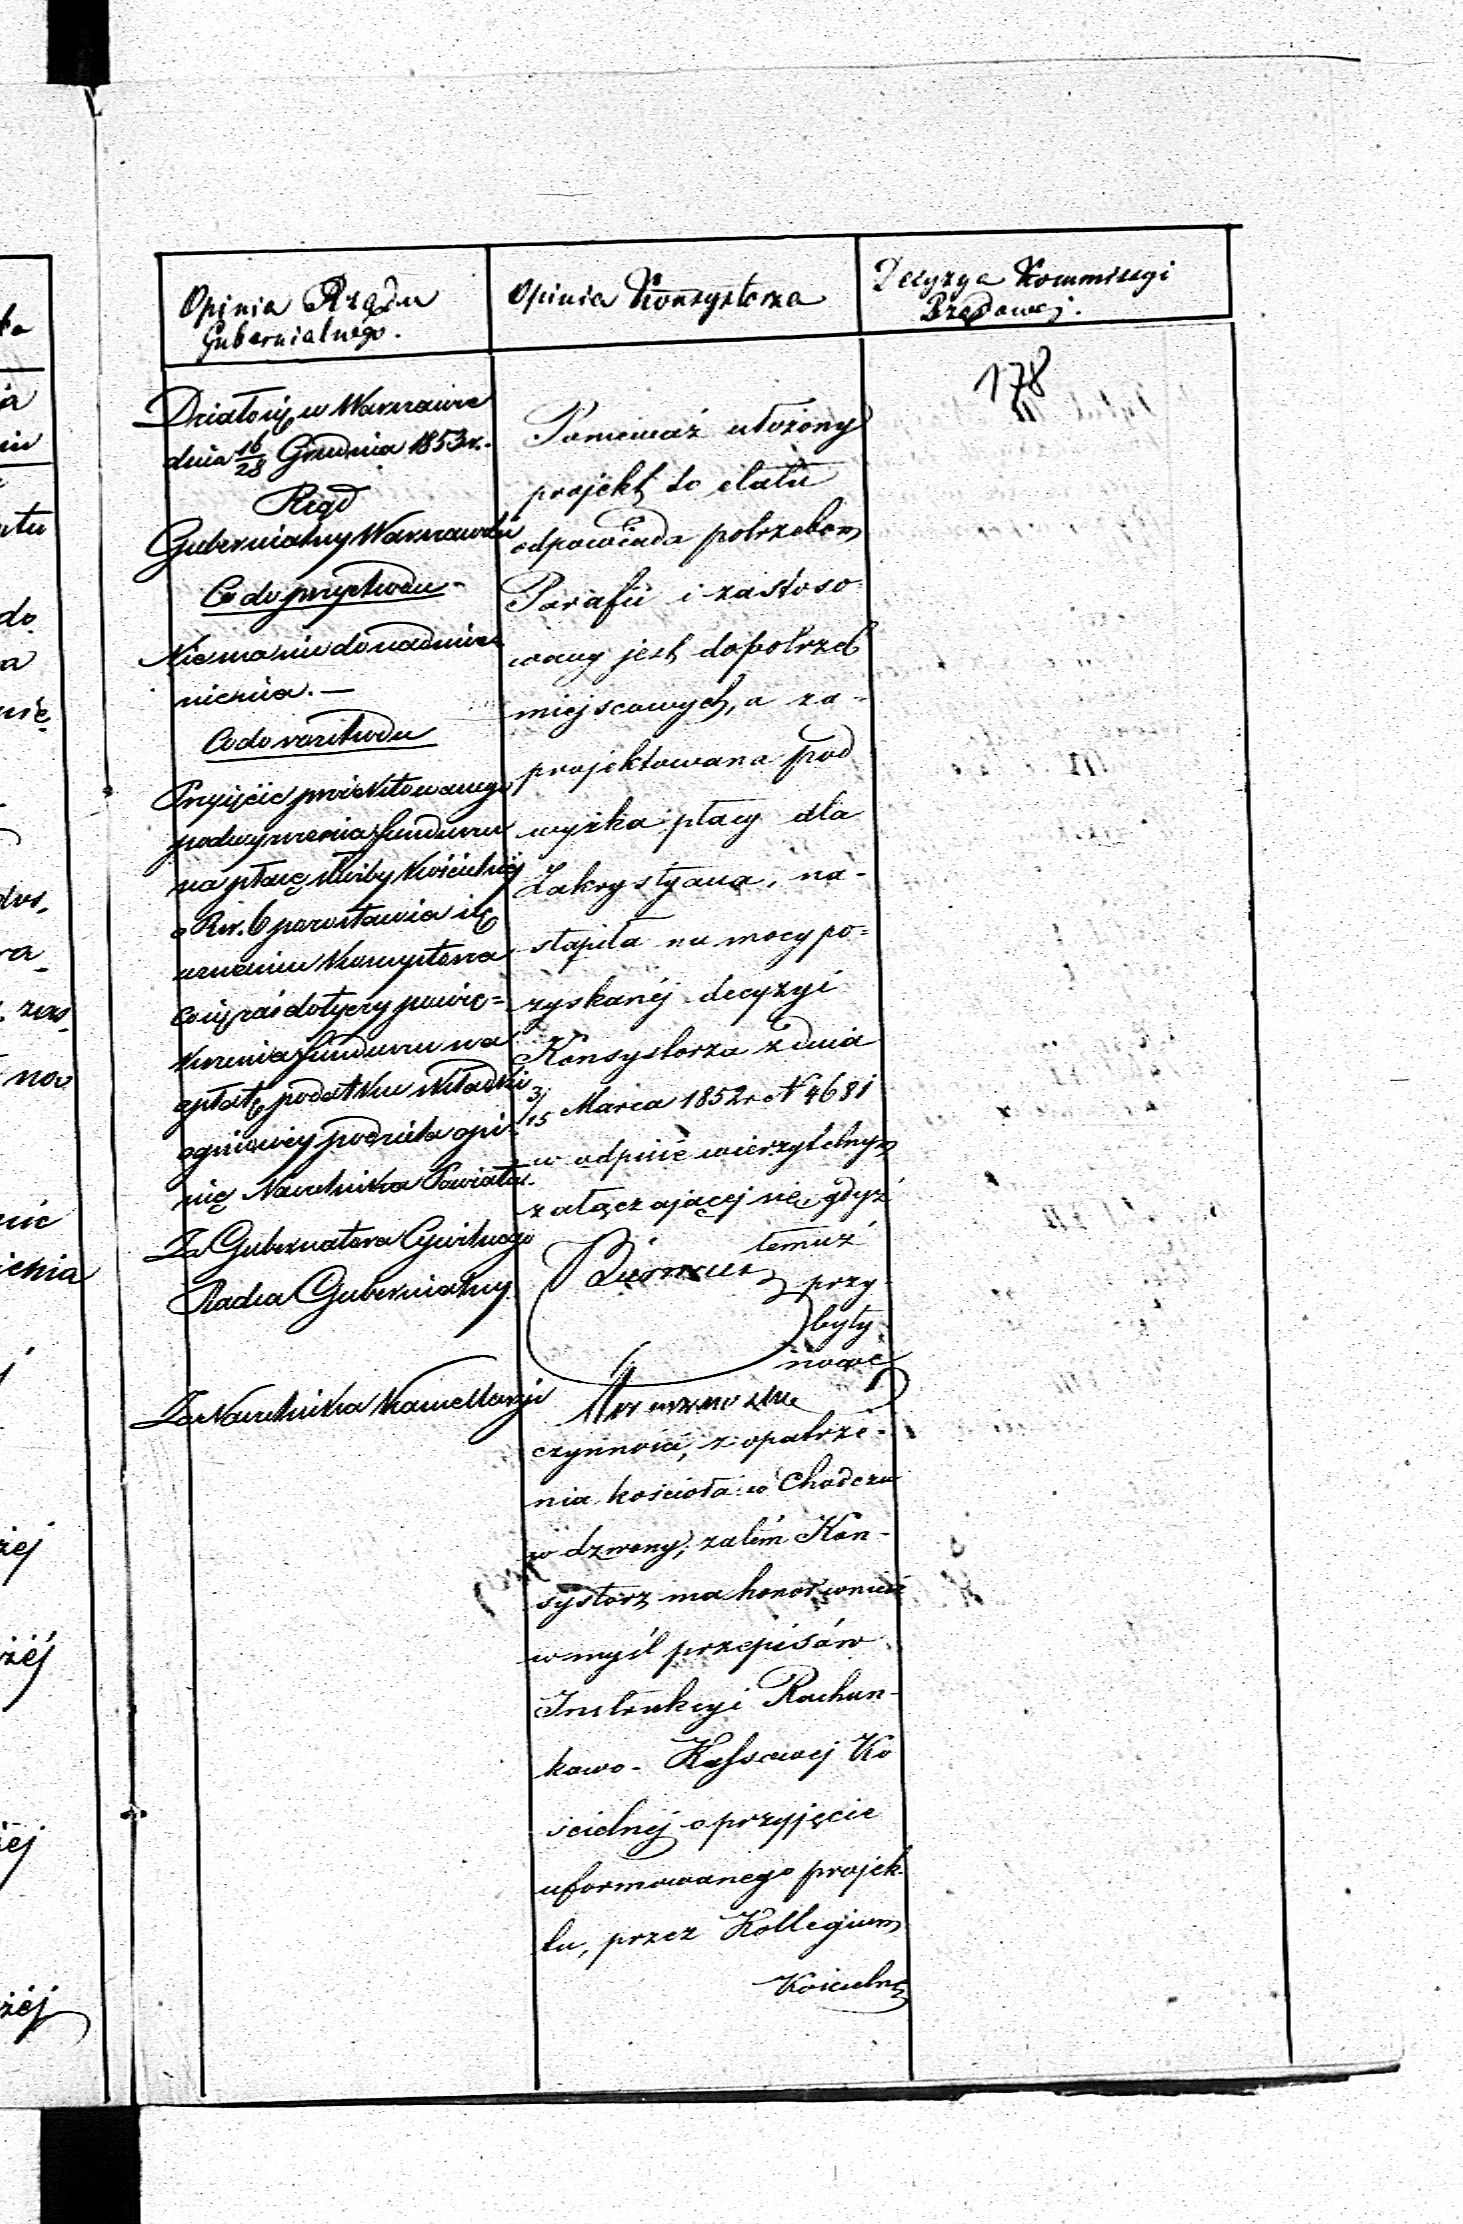 Opinia Rządu
Gubernialnego.
Opinia Konsystorza
Decyzya Kommissyi
Rządowej.
178
Działo się w Warszawie
dnia 16/28 Grudnia 1853 r.
Rząd
Gubernialny Warszawski
Co do przychodu
Niema nic do nadmie
nienia. —
Co do rozchodu
Przyjęcie projektowanego
podwyższenia funduszu
na płacę służby kościelnej
o Rsr. 6 pozostawia się
uznaniu Konsystorza
co się zaś dotyczy powię=
kszenia funduszu na
opłatę podatku składki
ogniowey podziela opi-
nię Naczelnika Powiatu.
Za Gubernatora Cywilnego
Radca Gubernialny
Za Naczelnika Kancellaryi
Ponieważ ułożony
projekt do etatu
odpowiada potrzebom
Parafii i zastoso
wany jest do potrzeb
miejscowych, a za-
projektowana pod
wyżka płacy dla
Zakrystyana, na-
stąpiła na mocy po=
zyskanéj decyzyi
Konsystorza z dnia
3/15 Marca 1852 r. N 4681
w odpisie wierzytelnym
załączającej się, gdyż
temuż
przy
były
nowe
czynności, z opatrze-
nia kościoła w Chodczu
w dzwony; zatém Kon-
systorz ma honor wnieść
w myśl przepisów
Instrukcyi Rachun-
kowo-Kassowej Ko
ścielnéj o przyjęcie
uformowanego projek
tu, przez Kollegium
Kościelne